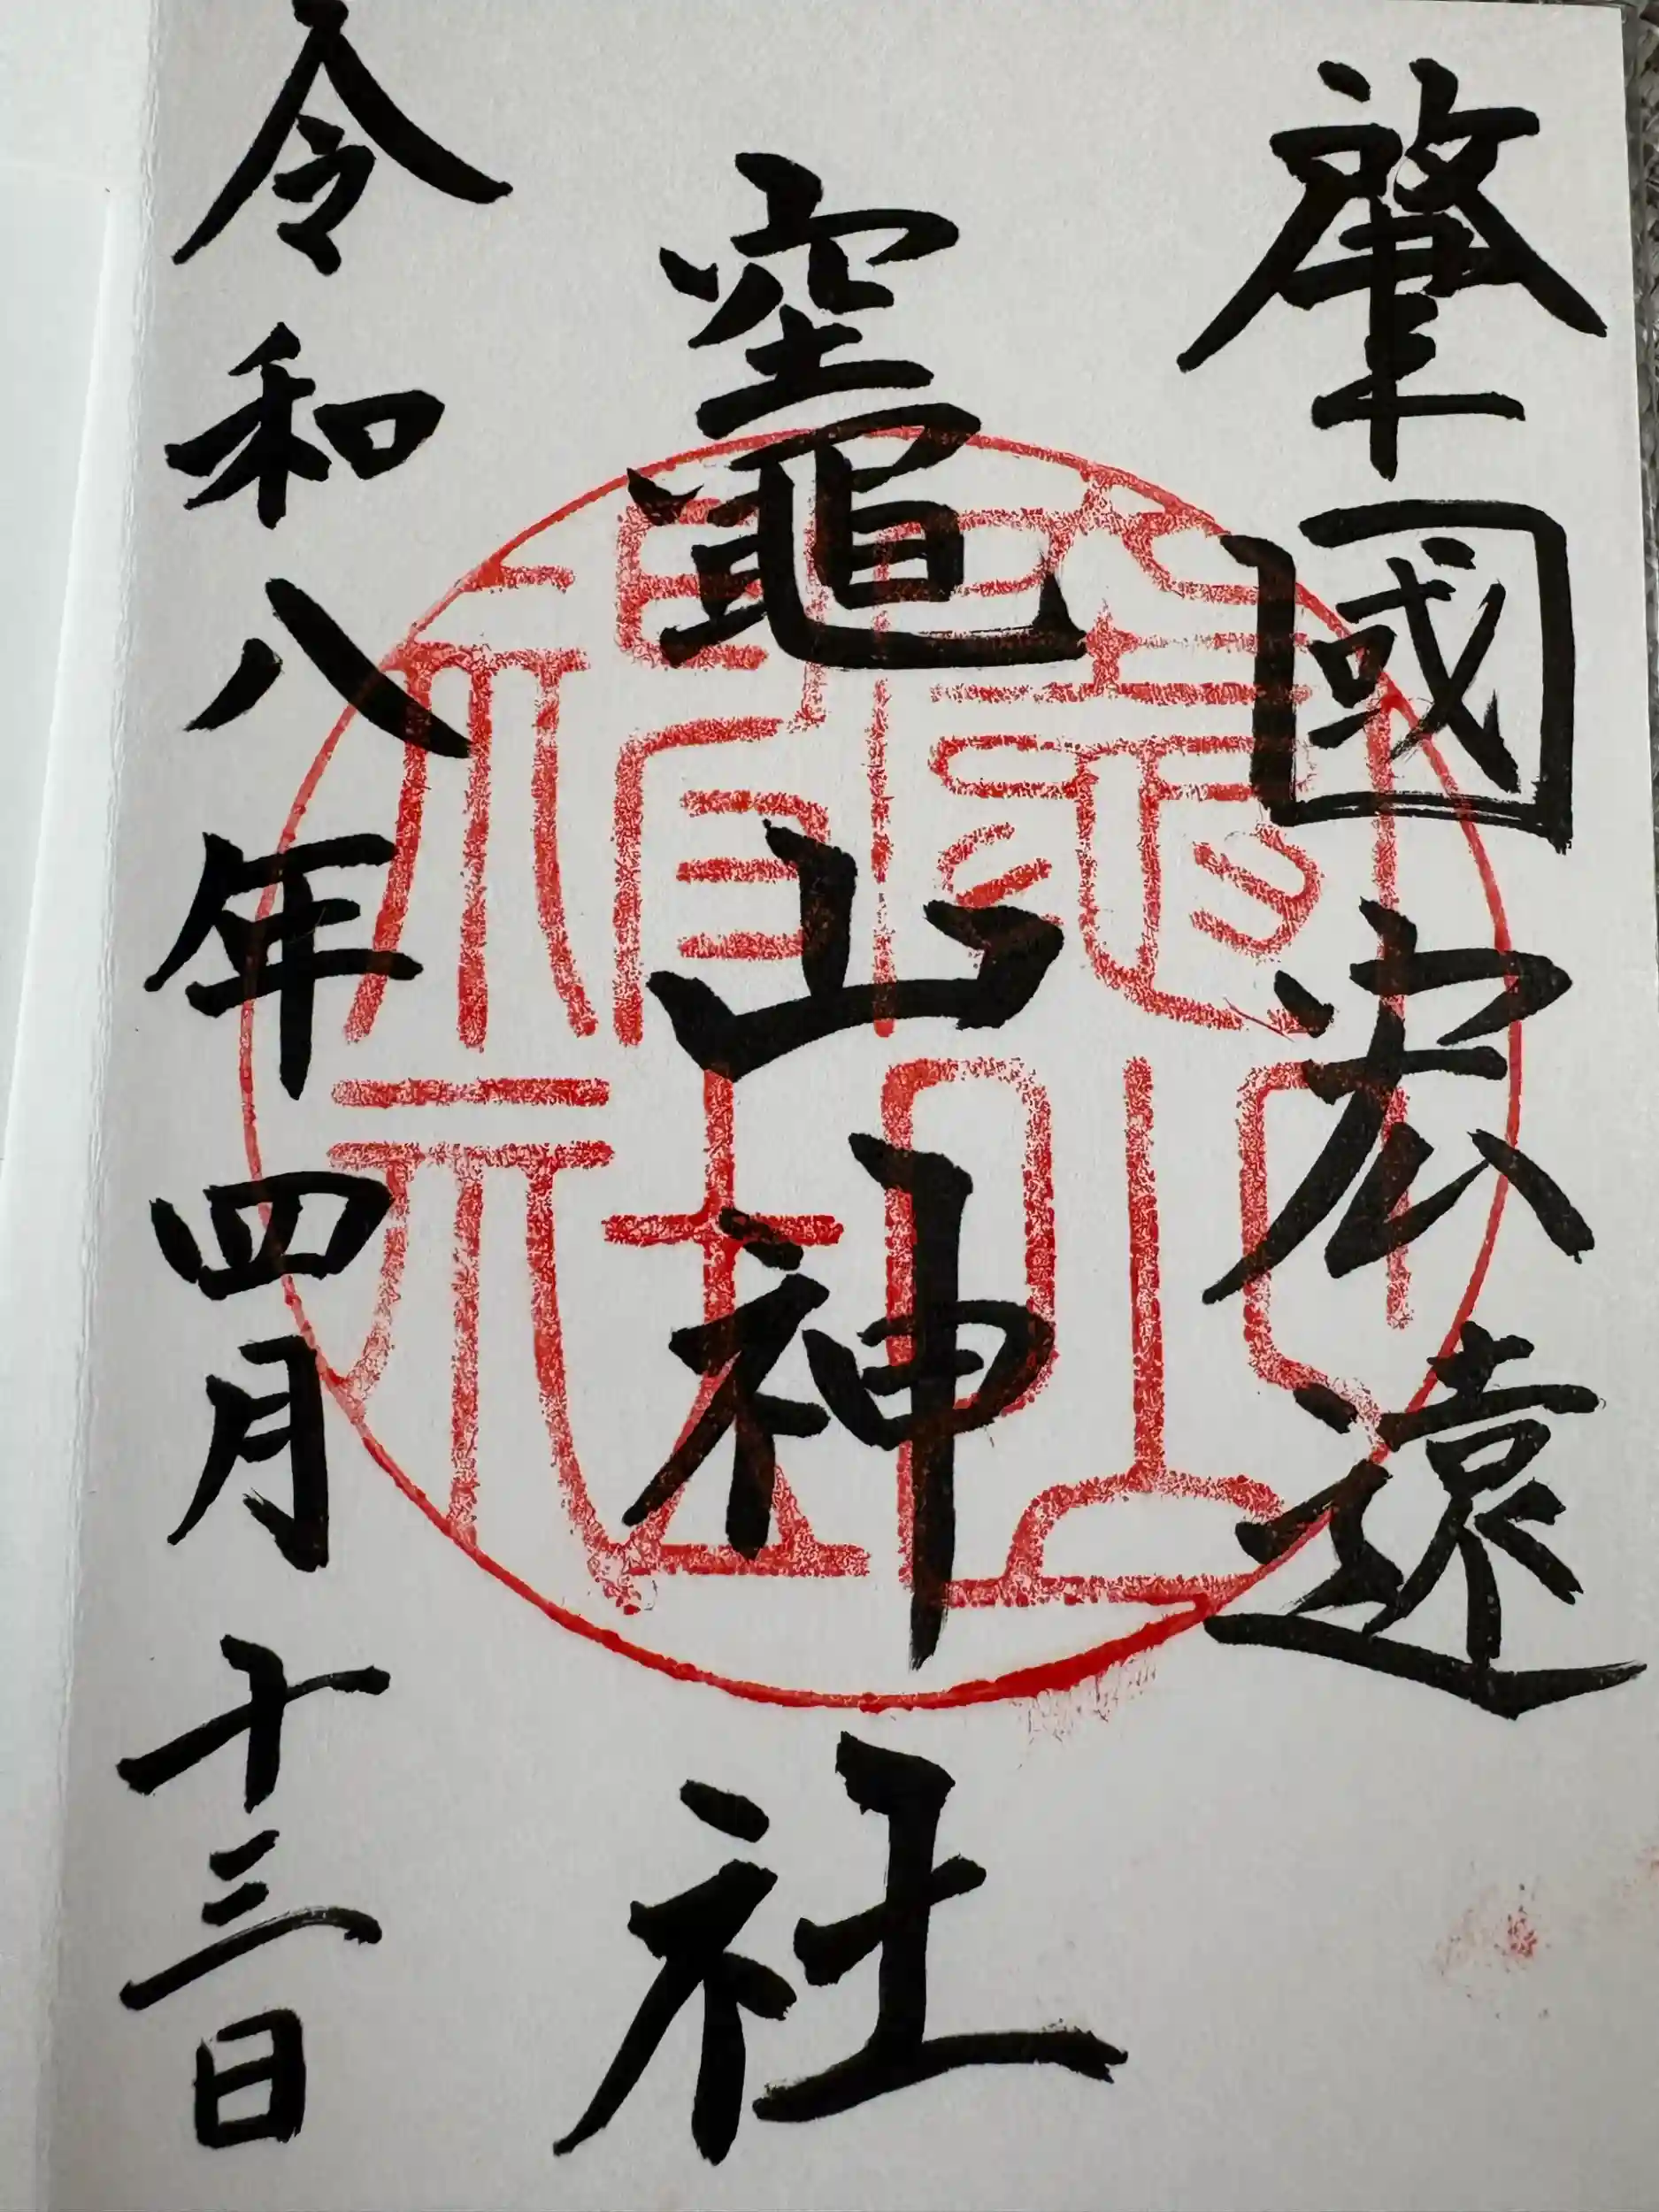 肇國宏遠
竈山神社
令和八年四月十三日
竈山
神社